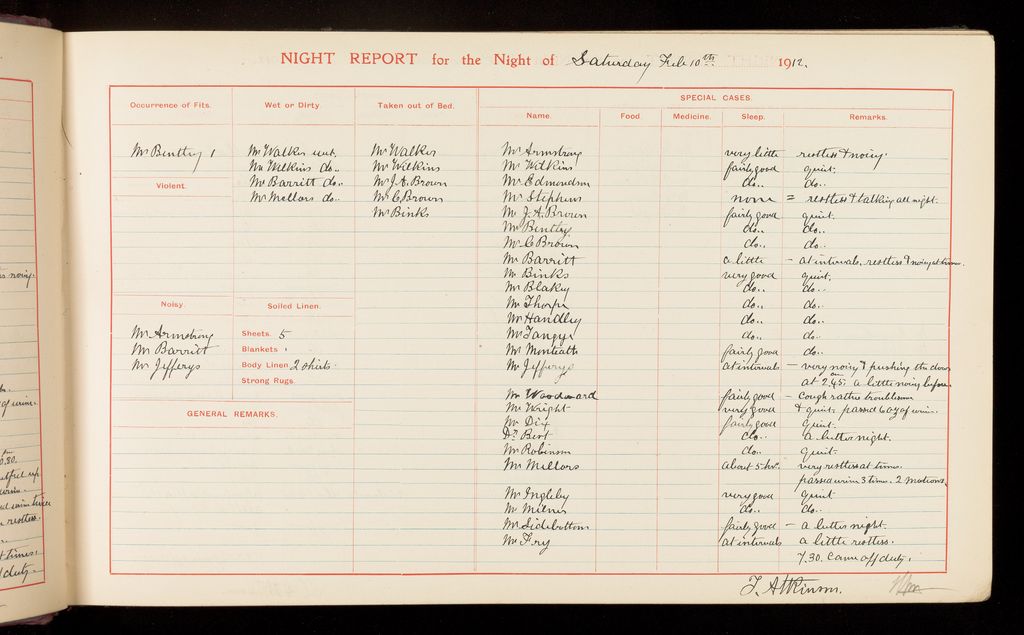 NIGHT REPORT for the Night of Saturday Feb 10th 1912.
Occurrence of Fits.
Mr Bentley 1
Violent.
Noisy.
Mr Armstrong
Mr Barritt
Mr Jefferys
Wet or Dirty.
Mr Walker wet.
Mr Wilkins do..
Mr Barritt do..
Mr Mellors do..
Soiled Linen.
Sheets. 5
Blankets
Body Linen 2 shirts
Strong Rugs.
GENERAL REMARKS.
Taken out of Bed.
Mr Walker
Mr Wilkins
Mr J. A. Brown
Mr C Brown
Mr Binks
SPECIAL CASES.
Name. Food. Medicine. Sleep. Remarks.
Mr Armstrong very little restless & noisy.
Mr Wilkins fairly good quiet.
Mr Edmondson do.. do..
Mr Stephens none = restless & talking all night.
Mr J. A. Brown fairly good quiet.
Mr Bentley do.. do..
Mr C Brown do.. do.
Mr Barritt a little – at intervals, restless & noisy at times.
Mr Binks very good quiet.
Mr Blakey do.. do..
Mr Thorpe do.. do..
Mr Handley do.. do..
Mr Tangye do.. do.
Mr Monteath fairly good do..
Mr Jefferys at intervals – very noisy & pushing the door
at 2.45. am a little noisy before.
Mr Woodward fairly good – cough rather troublesome
Mr Wright very good & quiet passed 6 oz of urine.
Mr Dix fairly good quiet.
Dr Bert do.. a better night.
Mr Robinson do.. quiet.
Mr Mellors about 5 hrs. very restless at times.
passed urine 3 times. 2 motions.
Mr Ingleby very good quiet
Mr Milner do.. do..
Mr Sidebottom fairly good – a better night.
Mr Fry at intervals a little restless.
7.30. Came off duty.
J. Atkinson.
s noisy.
of urine.
restless.
times.
duty.